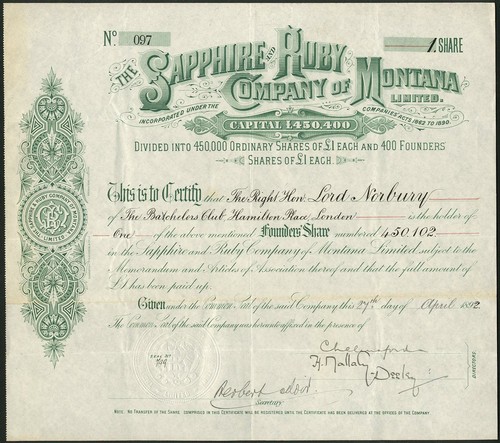 No 097
1 SHARE
THE SAPPHIRE AND RUBY
COMPANY OF MONTANA
LIMITED.
INCORPORATED UNDER THE COMPANIES ACTS, 1862 TO 1890.
CAPITAL £450,400
DIVIDED INTO 450,000 ORDINARY SHARES OF £1 EACH AND 400 FOUNDERS'
SHARES OF £1 EACH.
This is to Certify that The Right Hon. Lord Norbury
of The Bachelors Club Hamilton Place, London is the holder
of One of the above mentioned Founders' Share numbered 450,102
in the Sapphire and Ruby Company of Montana Limited subject to the
Memorandum and Articles of Association thereof and that the full amount of
£1 has been paid up.
Given under the Common Seal of the said Company this 27th day of April 1892.
The Common Seal of the said Company was hereunto affixed in the presence of
Chelmsford
DIRECTORS.
Secretary.
NOTE. NO TRANSFER OF THE SHARE COMPRISED IN THIS CERTIFICATE WILL BE REGISTERED UNTIL THE CERTIFICATE HAS BEEN DELIVERED AT THE OFFICES OF THE COMPANY